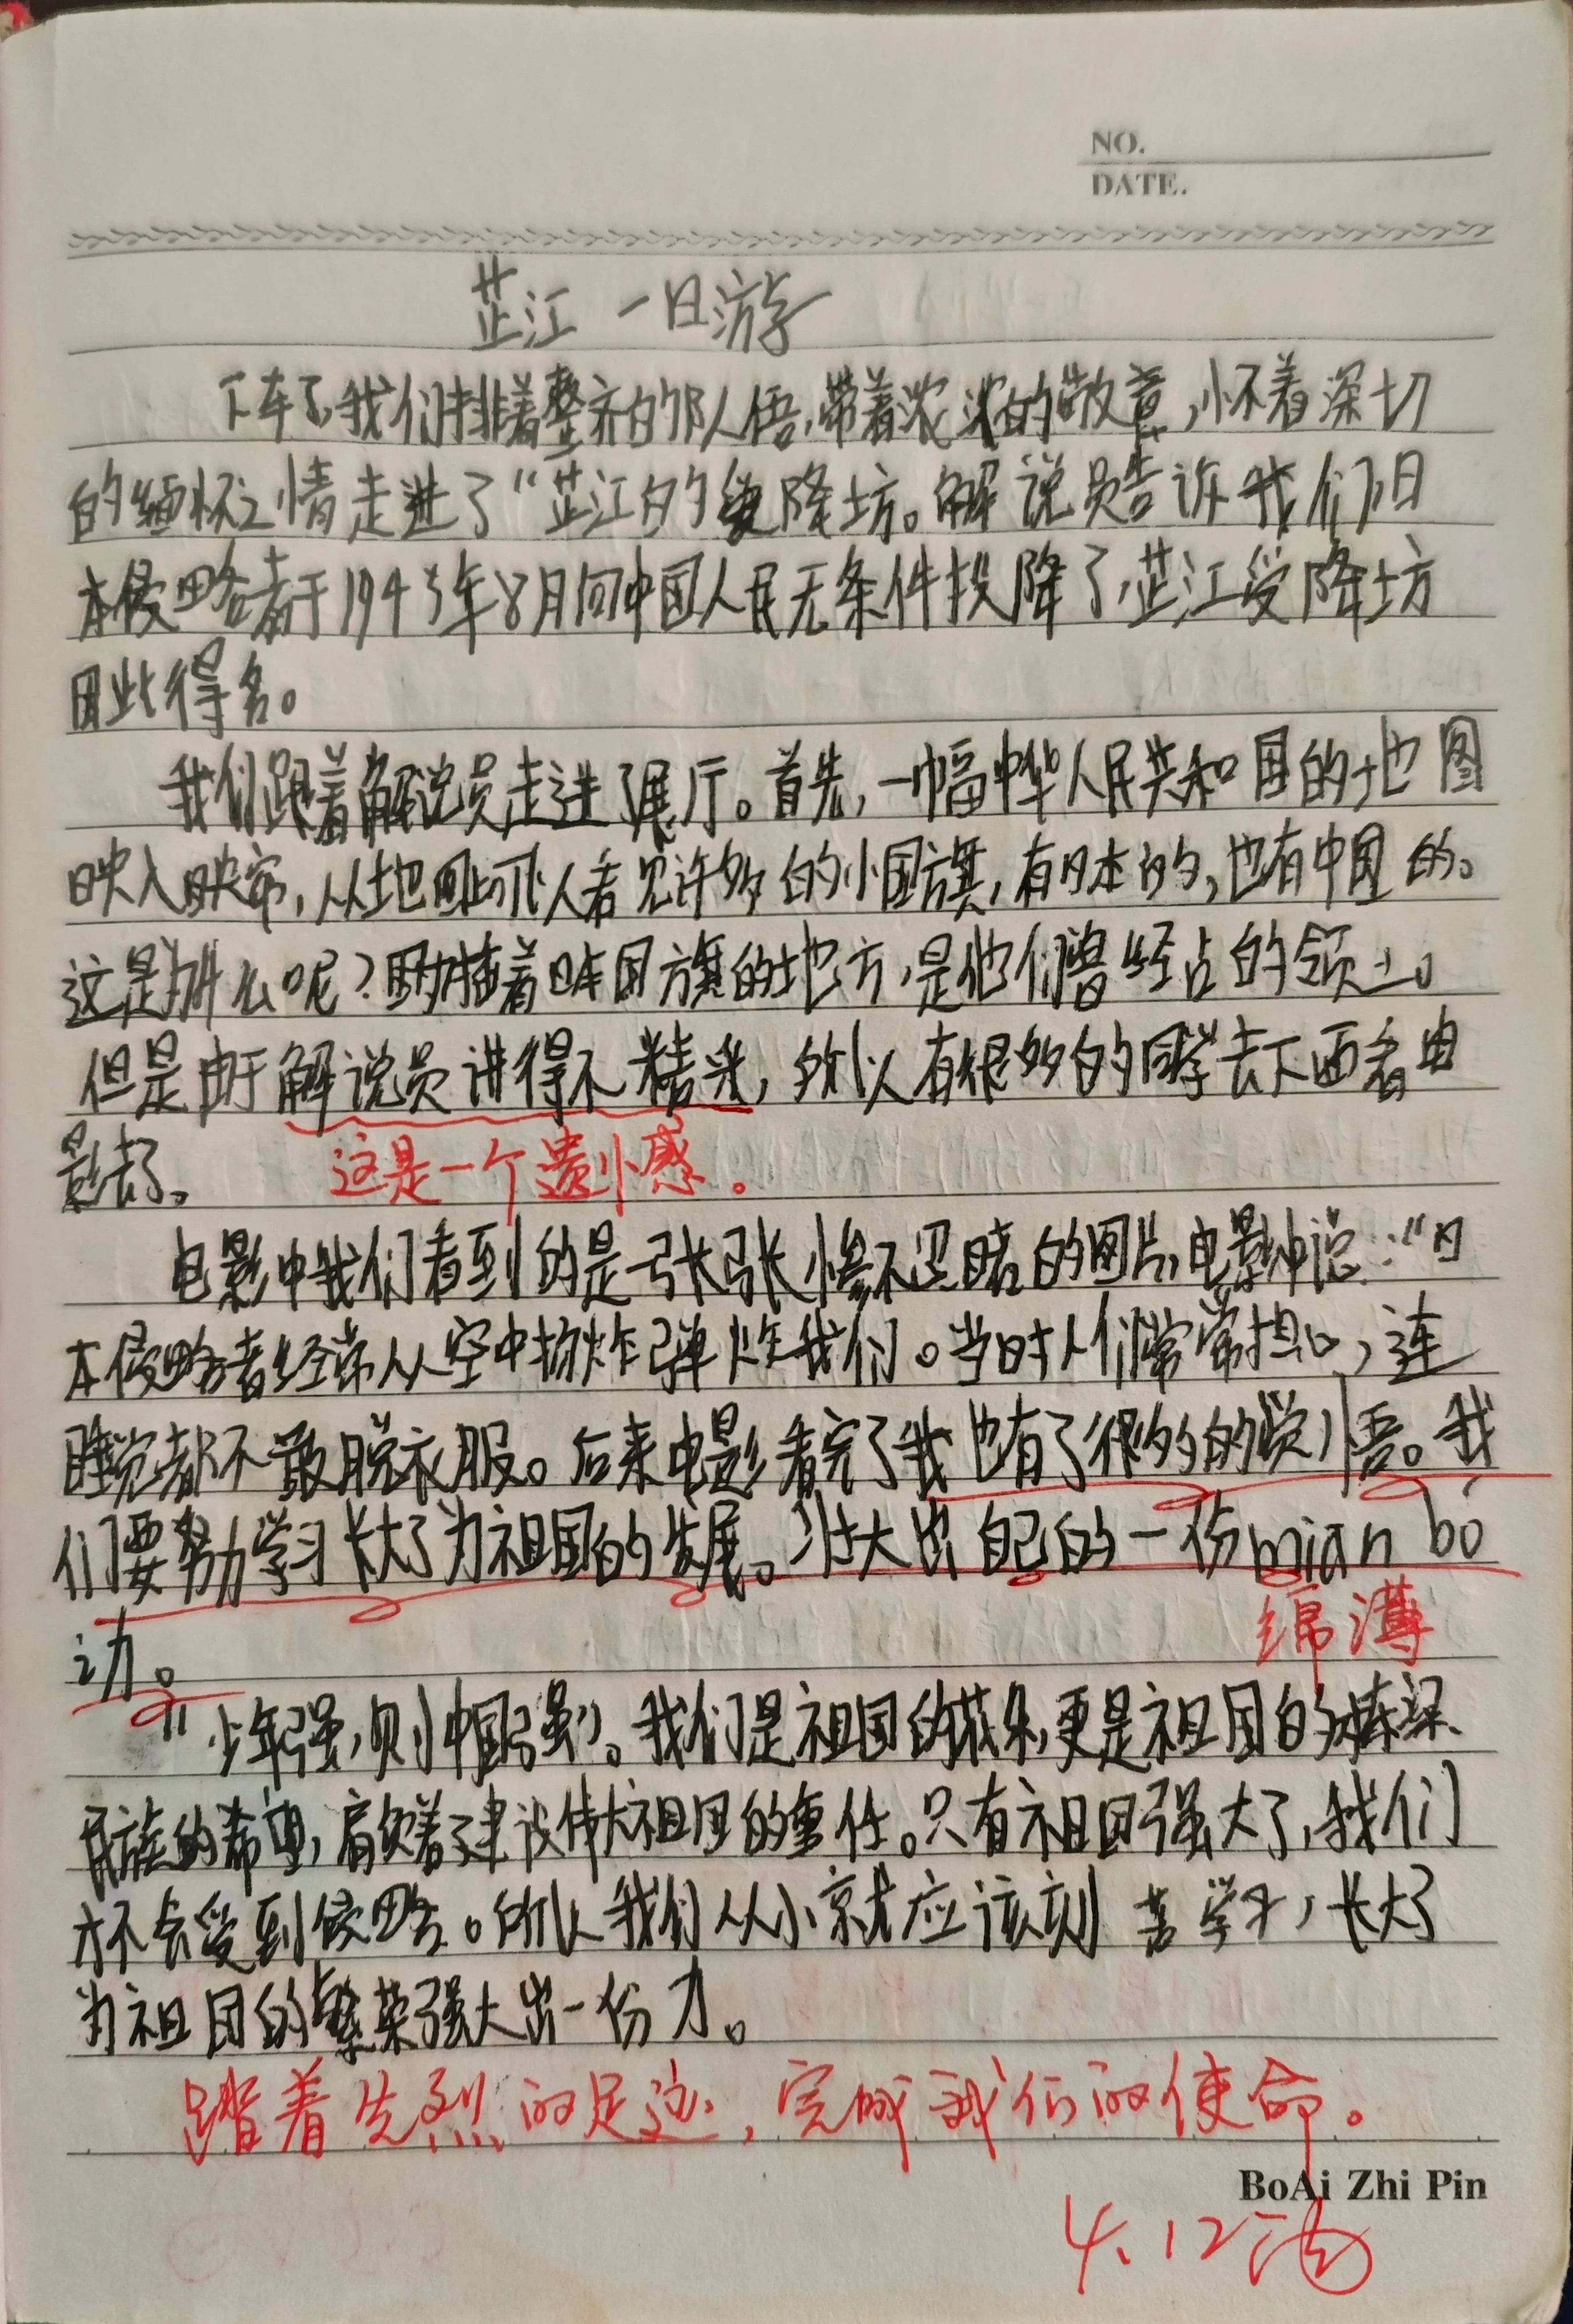 NO.
DATE.
芷江一日游
下车了,我们排着整齐的队伍,带着浓浓的敬意,怀着深切
的缅怀之情走进了“芷江的受降坊。解说员告诉我们日
本侵略者于1945年8月向中国人民无条件投降了,芷江受降坊
因此得名。
我们跟着解说员走进了展厅。首先,一幅中华人民共和国的地图
映入眼帘,从地图上可以看见许多的小国旗,有日本的,也有中国的。
这是为什么呢?因为插着日本国旗的地方,是他们曾经占的领土。
但是由于解说员讲得不精采,所以有很多的同学去下面看电
影去了。
这是一个遗憾。
电影中我们看到的是一张张惨不忍睹的图片,电影中说:“日
本侵略者经常从空中扔炸弹炸我们。当时人们常常担心,连
睡觉都不敢脱衣服。后来电影看完了我也有了很多的觉悟。我
们要努力学习长大了为祖国的发展。壮大出自己的一份mian bó
之力。
绵薄
“少年强,则中国强”。我们是祖国的花朵,更是祖国的栋梁、
民族的希望,肩负着建设伟大祖国的重任。只有祖国强大了,我们
才不会受到侵略。所以我们从小就应该刻苦学习,长大了
为祖国的繁荣强大出一份力。
踏着先烈的足迹,完成我们的使命。
BoAi Zhi Pin
4.12